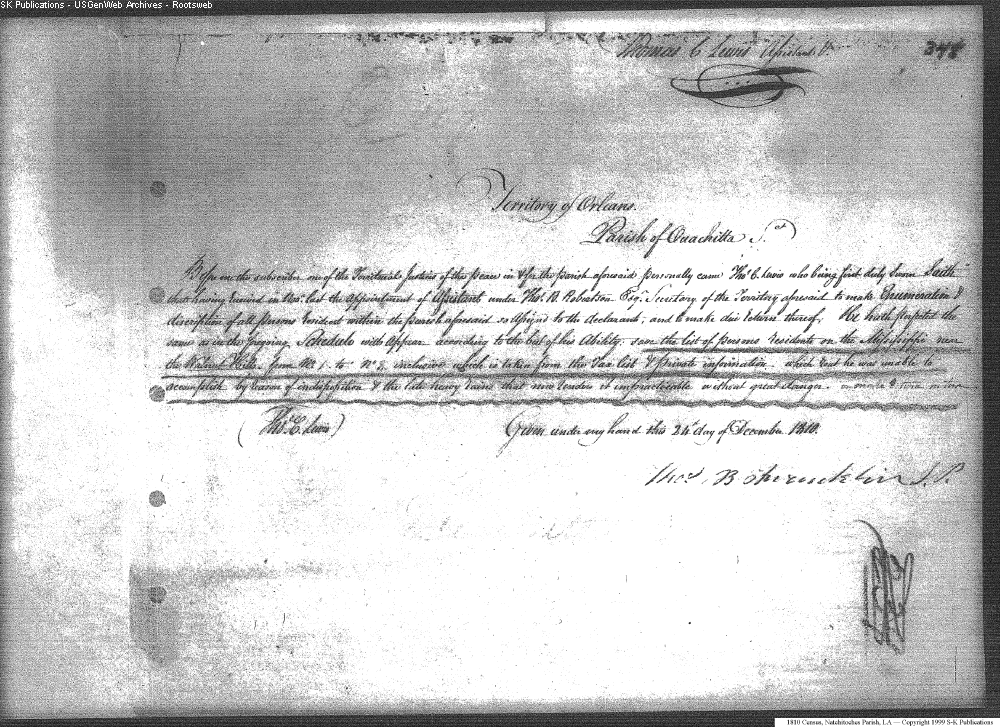 SK Publications - USGenWeb Archives - Rootsweb
Thomas C Lewis Assistant
348
Territory of Orleans.
Parish of Ouachitta
Before me the subscriber one of the Territorial Justices of the peace in & for the Parish aforesaid personally came Thos. C. Lewis who being first duly Sworn Saith
that having received in Nov. last the appointment of Assistant under Thos. B. Robertson Esqr. Secretary of the Territory aforesaid to make Enumeration &
discription of all persons resident within the parish aforesaid so assigned to the declarant, and to make due return thereof, He hath
same as in the foregoing Schedule will appear according to the best of his Ability. save the list of Persons Residents on the Mississippi near
the Walnut Hills from No. 1. to No. 8. inclusive which is taken from the Tax list & private information. which he was unable to
accomplish by reason of indisposition & the late heavy rains that now render it impracticable without great danger.
(Thos. C. Lewis)
Given under my hand this 24th day of December 1810.
Thos. B J.P.
1810 Census, Natchitoches Parish, LA — Copyright 1999 S-K Publications